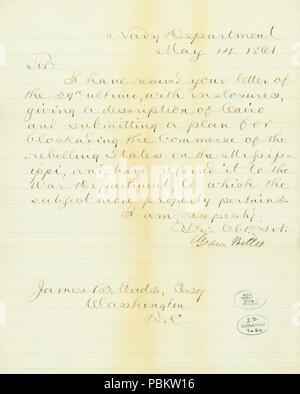 Navy Department
May 14. 1861
Sir:
I have received your letter of
the 29th ultimo, with enclosures,
giving a description of Cairo
and submitting a plan for
blockading the Commerce of the
rebelling States on the Missis-
ippi, and have referred it to the
War Department to which the
subject more properly pertains.
I am, respecy,
Yr. Obt. Svt.
Gideon Welles
James B. Eads, Esq
Washington
D.C.
J.B.
Collection
alamy
Image ID: PBKW16
www.alamy.com